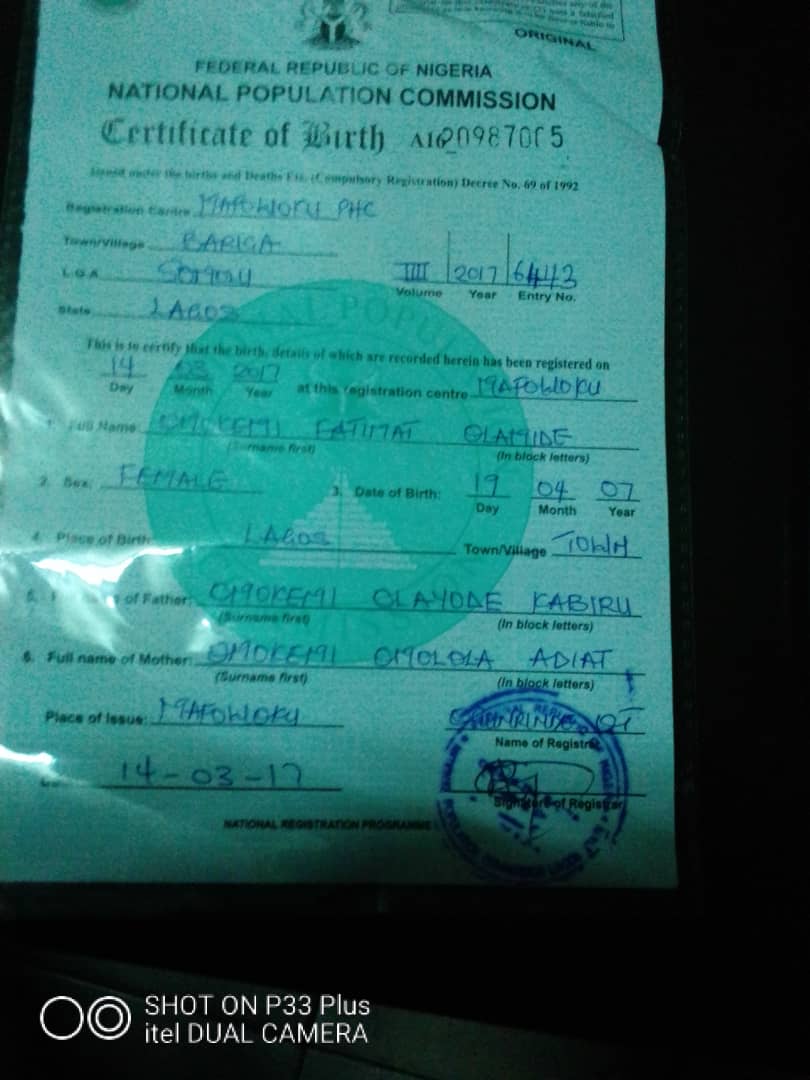 ORIGINAL
FEDERAL REPUBLIC OF NIGERIA
NATIONAL POPULATION COMMISSION
Certificate of Birth A1620987005
Issued under the births and Deaths Etc. (Compulsory Registration) Decree No. 69 of 1992
Registration Centre MAFOWOKU PHC
Town/Village BARIGA
L.G.A
III 2017 6443
Volume Year Entry No.
State LAGOS
This is to certify that the birth, details of which are recorded herein has been registered on
14 03 2017 at this registration centre MAFOWOKU
Day Month Year
1. Full Name: OMOKEMI FATIMAT OLAMIDE
(Surname first) (In block letters)
2. Sex: FEMALE 3. Date of Birth: 19 04 07
Day Month Year
4. Place of Birth: LAGOS Town/Village TOWN
5. of Father: OMOKEMI OLAYODE KABIRU
(Surname first) (In block letters)
6. Full name of Mother: OMOKEMI OMOLOLA ADIAT
(Surname first) (In block letters)
Place of Issue: MAFOWOKU
Name of Registrar
14-03-17
Signature of Registrar
NATIONAL REGISTRATION PROGRAMME
SHOT ON P33 Plus
itel DUAL CAMERA